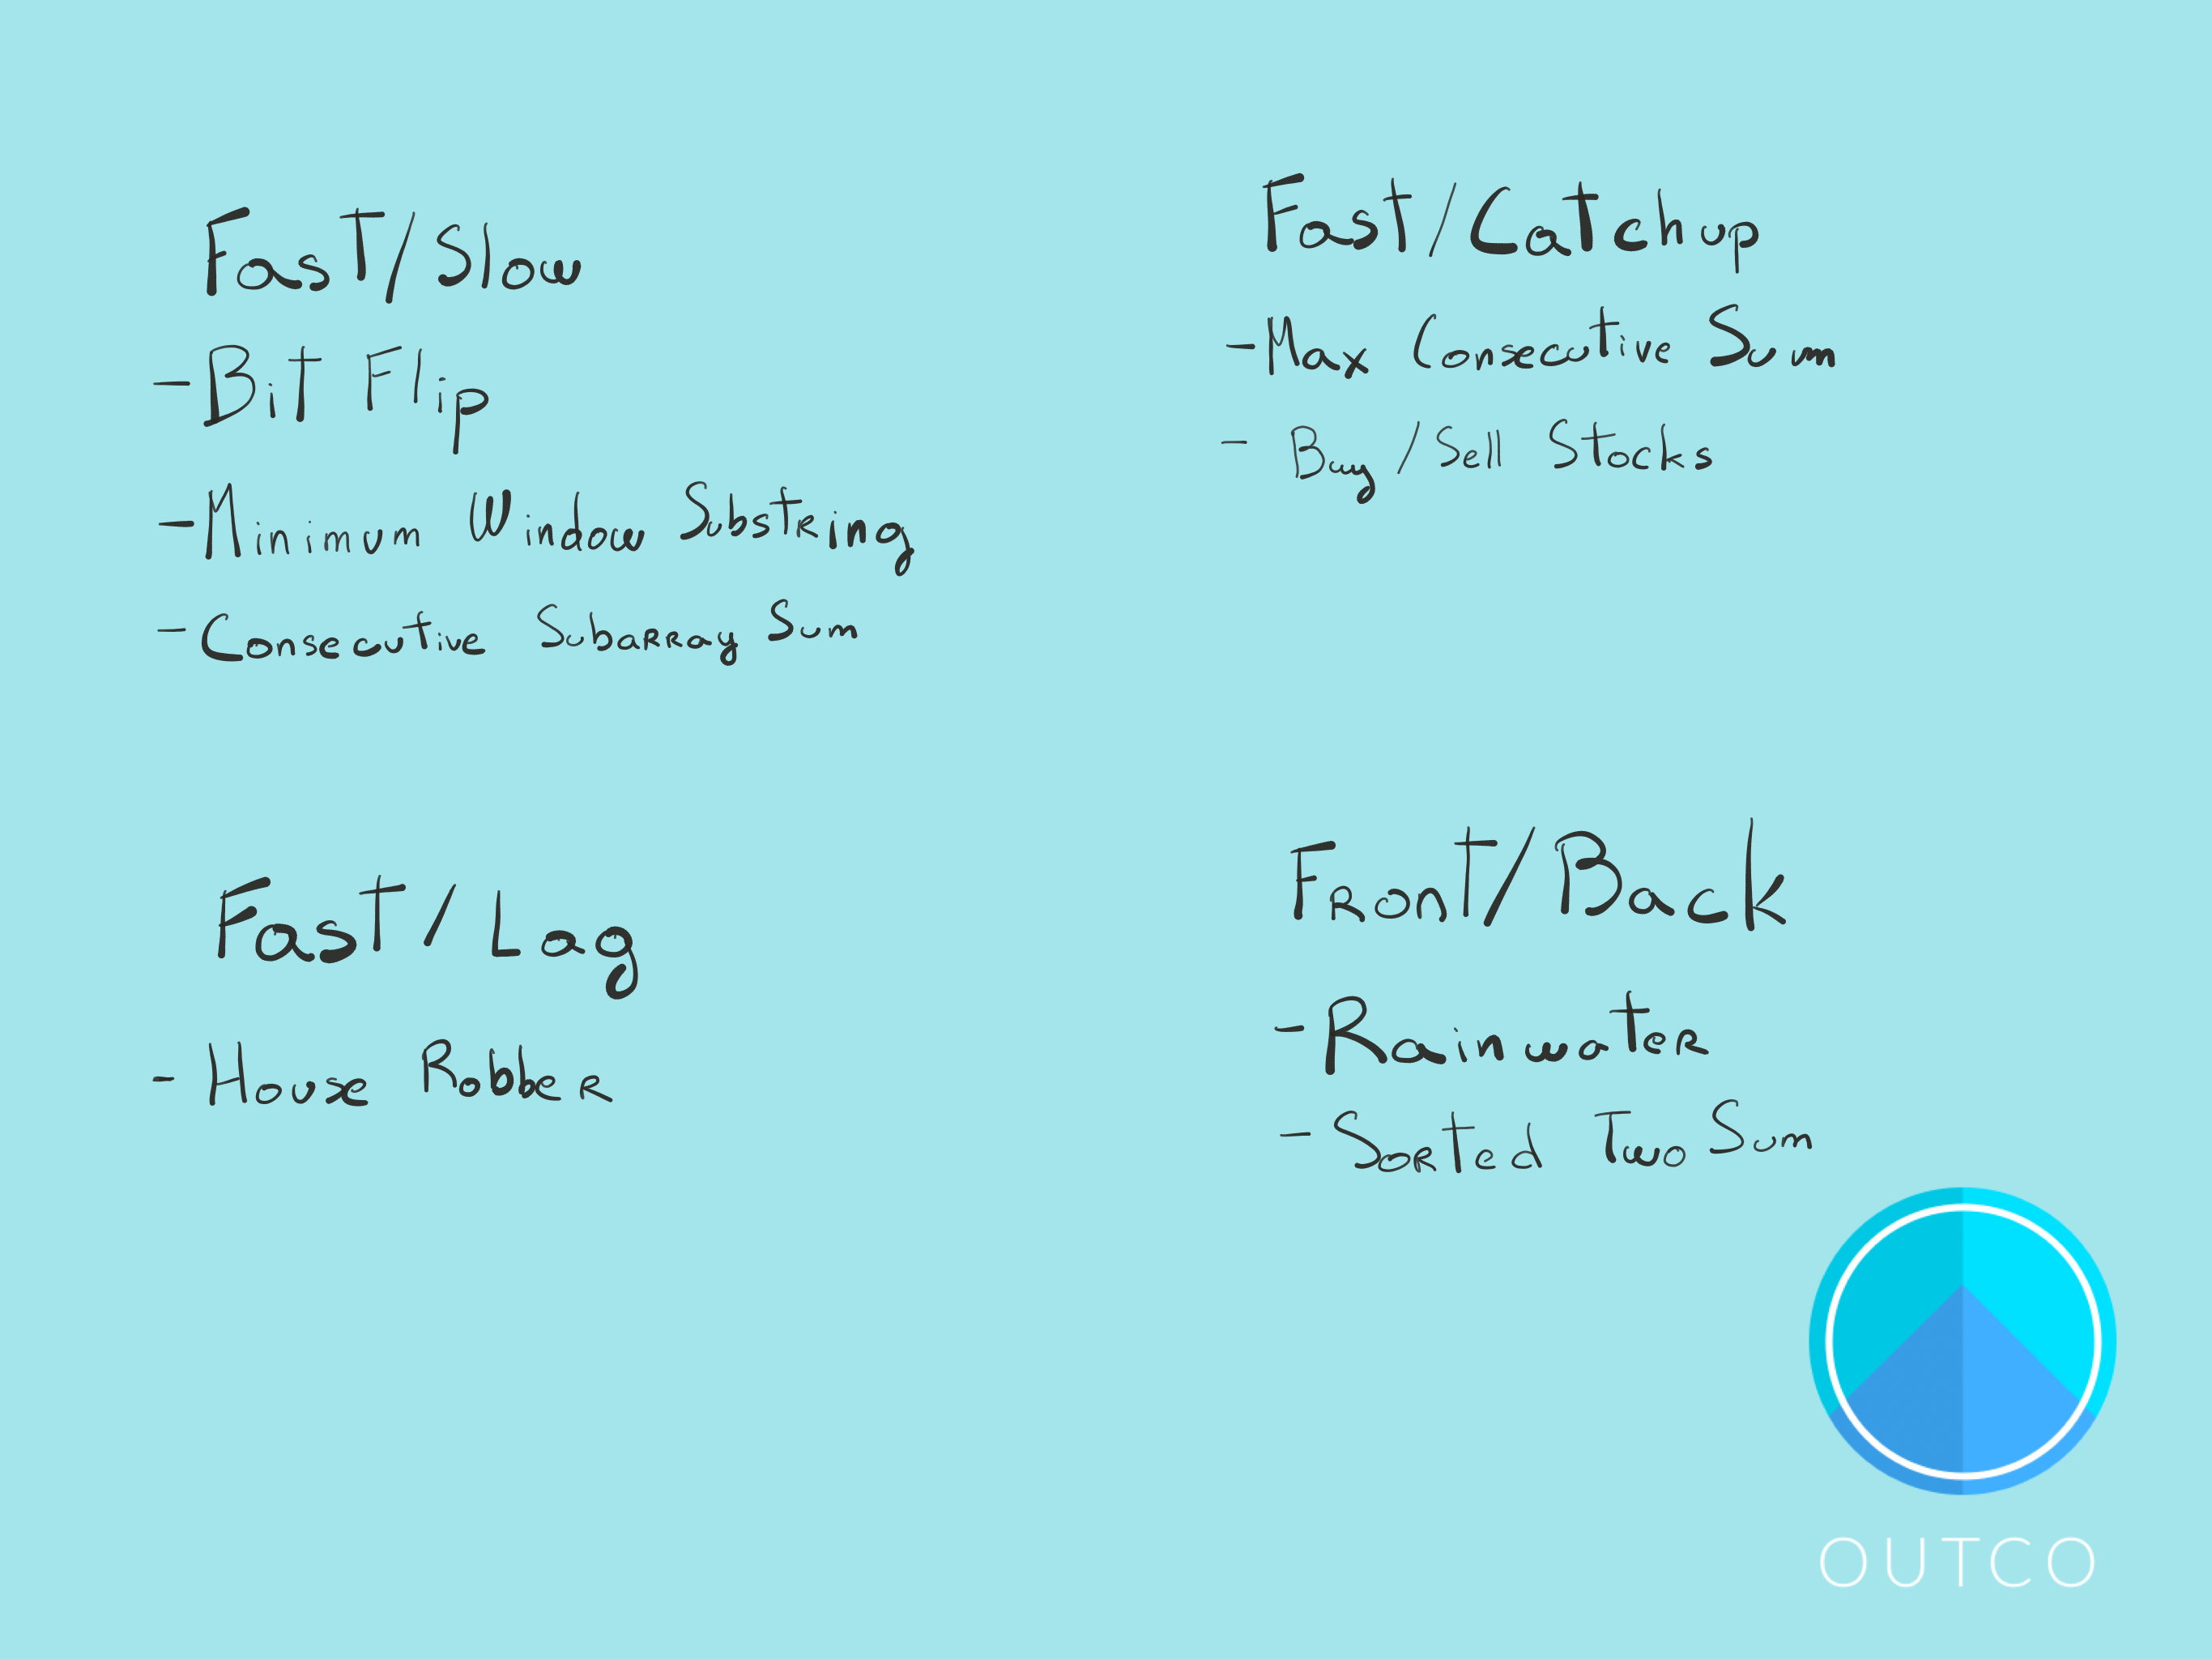 Fast/Slow
- Bit Flip
- Minimum Window Substring
- Consecutive Subarray Sum
Fast/Catchup
- Max Consecutive Sum
- Buy/Sell Stocks
Fast/Lag
- House Robber
Front/Back
- Rainwater
- Sorted Two Sum
OUTCO